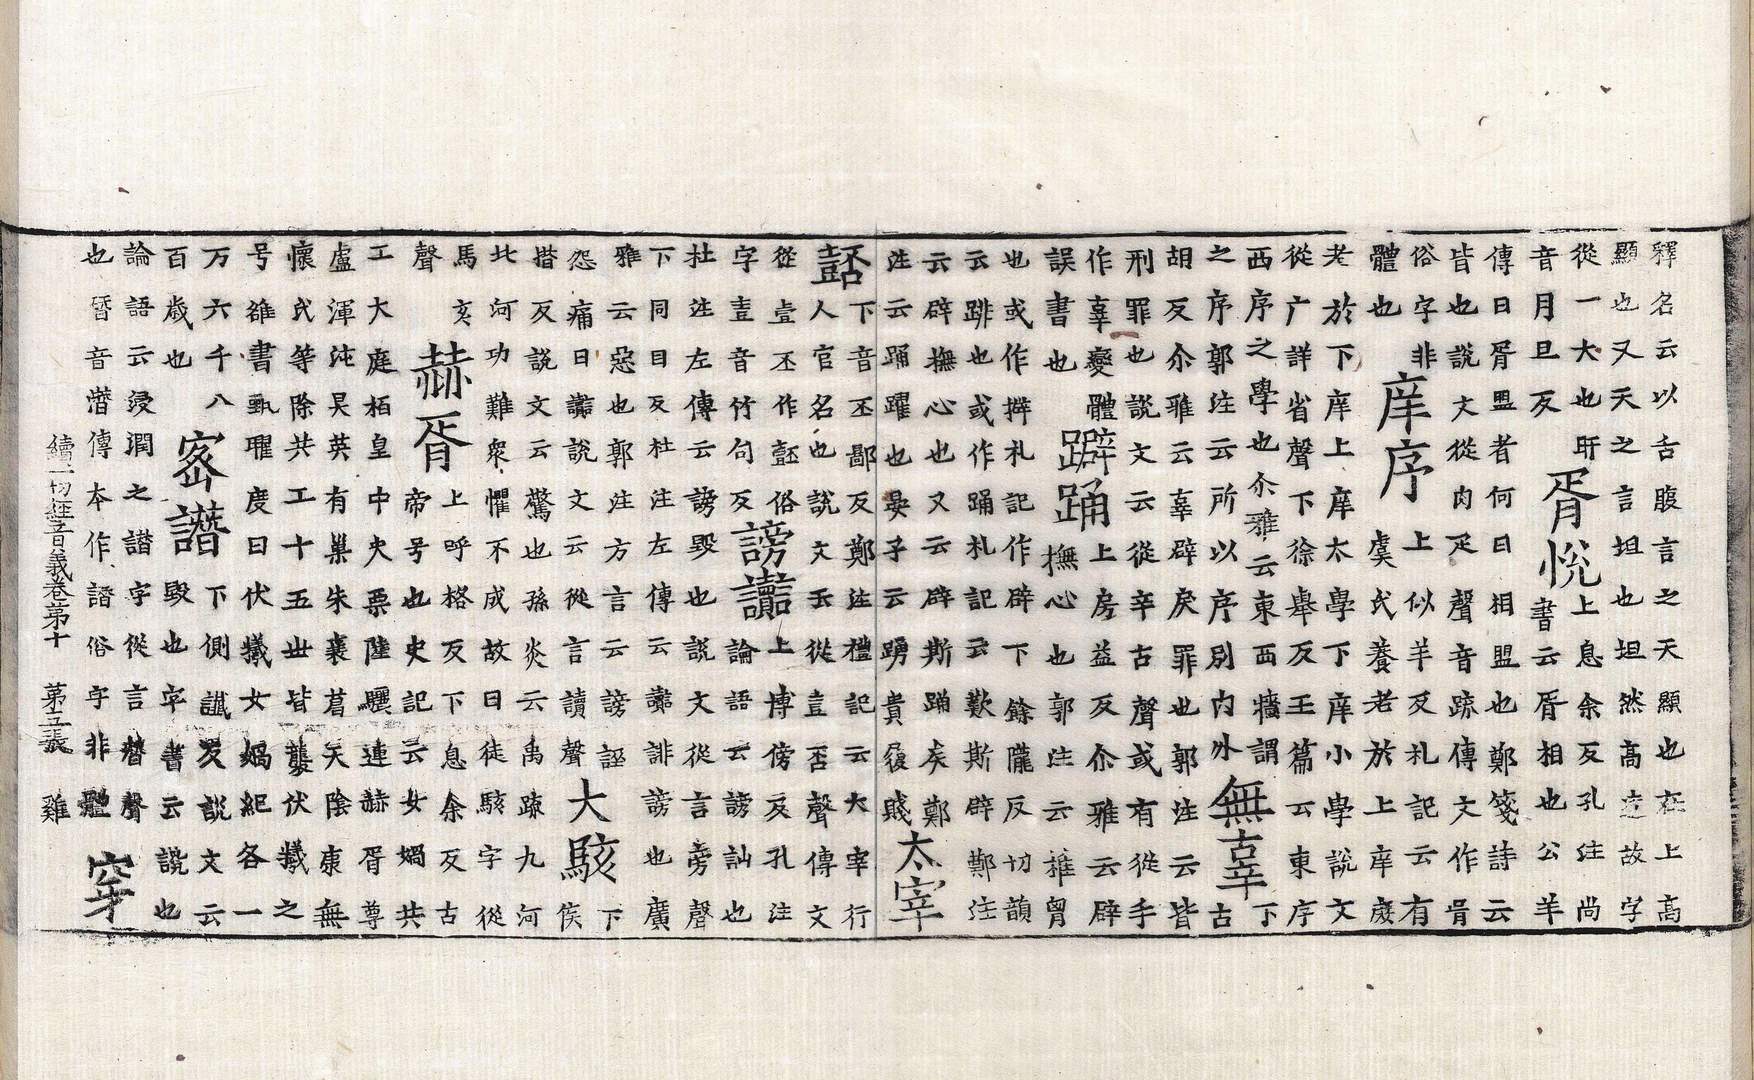 釋名云以舌腹言之天顯也在上高
顯也又天之言坦也坦然高遠故字
從一大也 昕 胥悅 上息余反孔注尚
音月旦反 書云胥相也公羊
傳曰胥盟者何曰相盟也鄭箋詩云
皆也說文從肉疋聲音疏傳文作胥
俗字非 庠序 上似羊反札記云有
體也 虞氏養老於上庠庾
老於下庠上庠太學下庠小學說文
從广詳省聲下徐舉反玉篇云東序
西序之學也尒雅云東西牆謂
之序郭注云所以序別内外 無辜 下古
胡反尒雅云辜辟戾罪也郭注云皆
刑罪也說文云從辛古聲或有從手
作辜變體 躃踊 上房益反尒雅云辟
誤書也 撫心也郭注云椎胷
也或作擗札記作辟下餘隴反切韻
云跳也或作踊札記云歎斯辟鄭注
云辟撫心也又云辟斯踊矣鄭
注云踊躍也晏子云踴貴屨賤 太宰
嚭 下音丕鄙反鄭注禮記云大宰行
人官名也說文云從壴否聲傳文
從壹丕作噽俗 謗讟 上博傍反孔注
字壴音竹句反 論語云謗訕也
杜注左傳云謗毀也說文從言旁聲
下同目反杜注左傳云讟誹謗也廣
雅云惡也郭注方言云謗誣 下
怨痛曰讟說文云從言讀聲 大駭 侯
揩反說文云驚也孫炎云禹疏九河
北河功難衆懼不成故曰徒駭字從
馬亥聲 赫胥 上呼格反下息余反古
帝号也史記云女媧共
工大庭栢皇中央栗陸驪連赫胥尊
盧渾沌昊英有巢朱襄葛天陰康無
懷氏等除共工十五世皆襲伏犧之
号雒書甄曜度曰伏犧女媧紀各一
万六千八 密譖 下側讖反說文云
百歲也 毀也字書云讒也
論語云浸潤之譖字從言朁聲
也朁音潛傳本作譛俗字非體 穿
續一切經音義卷第十 第五張 雞